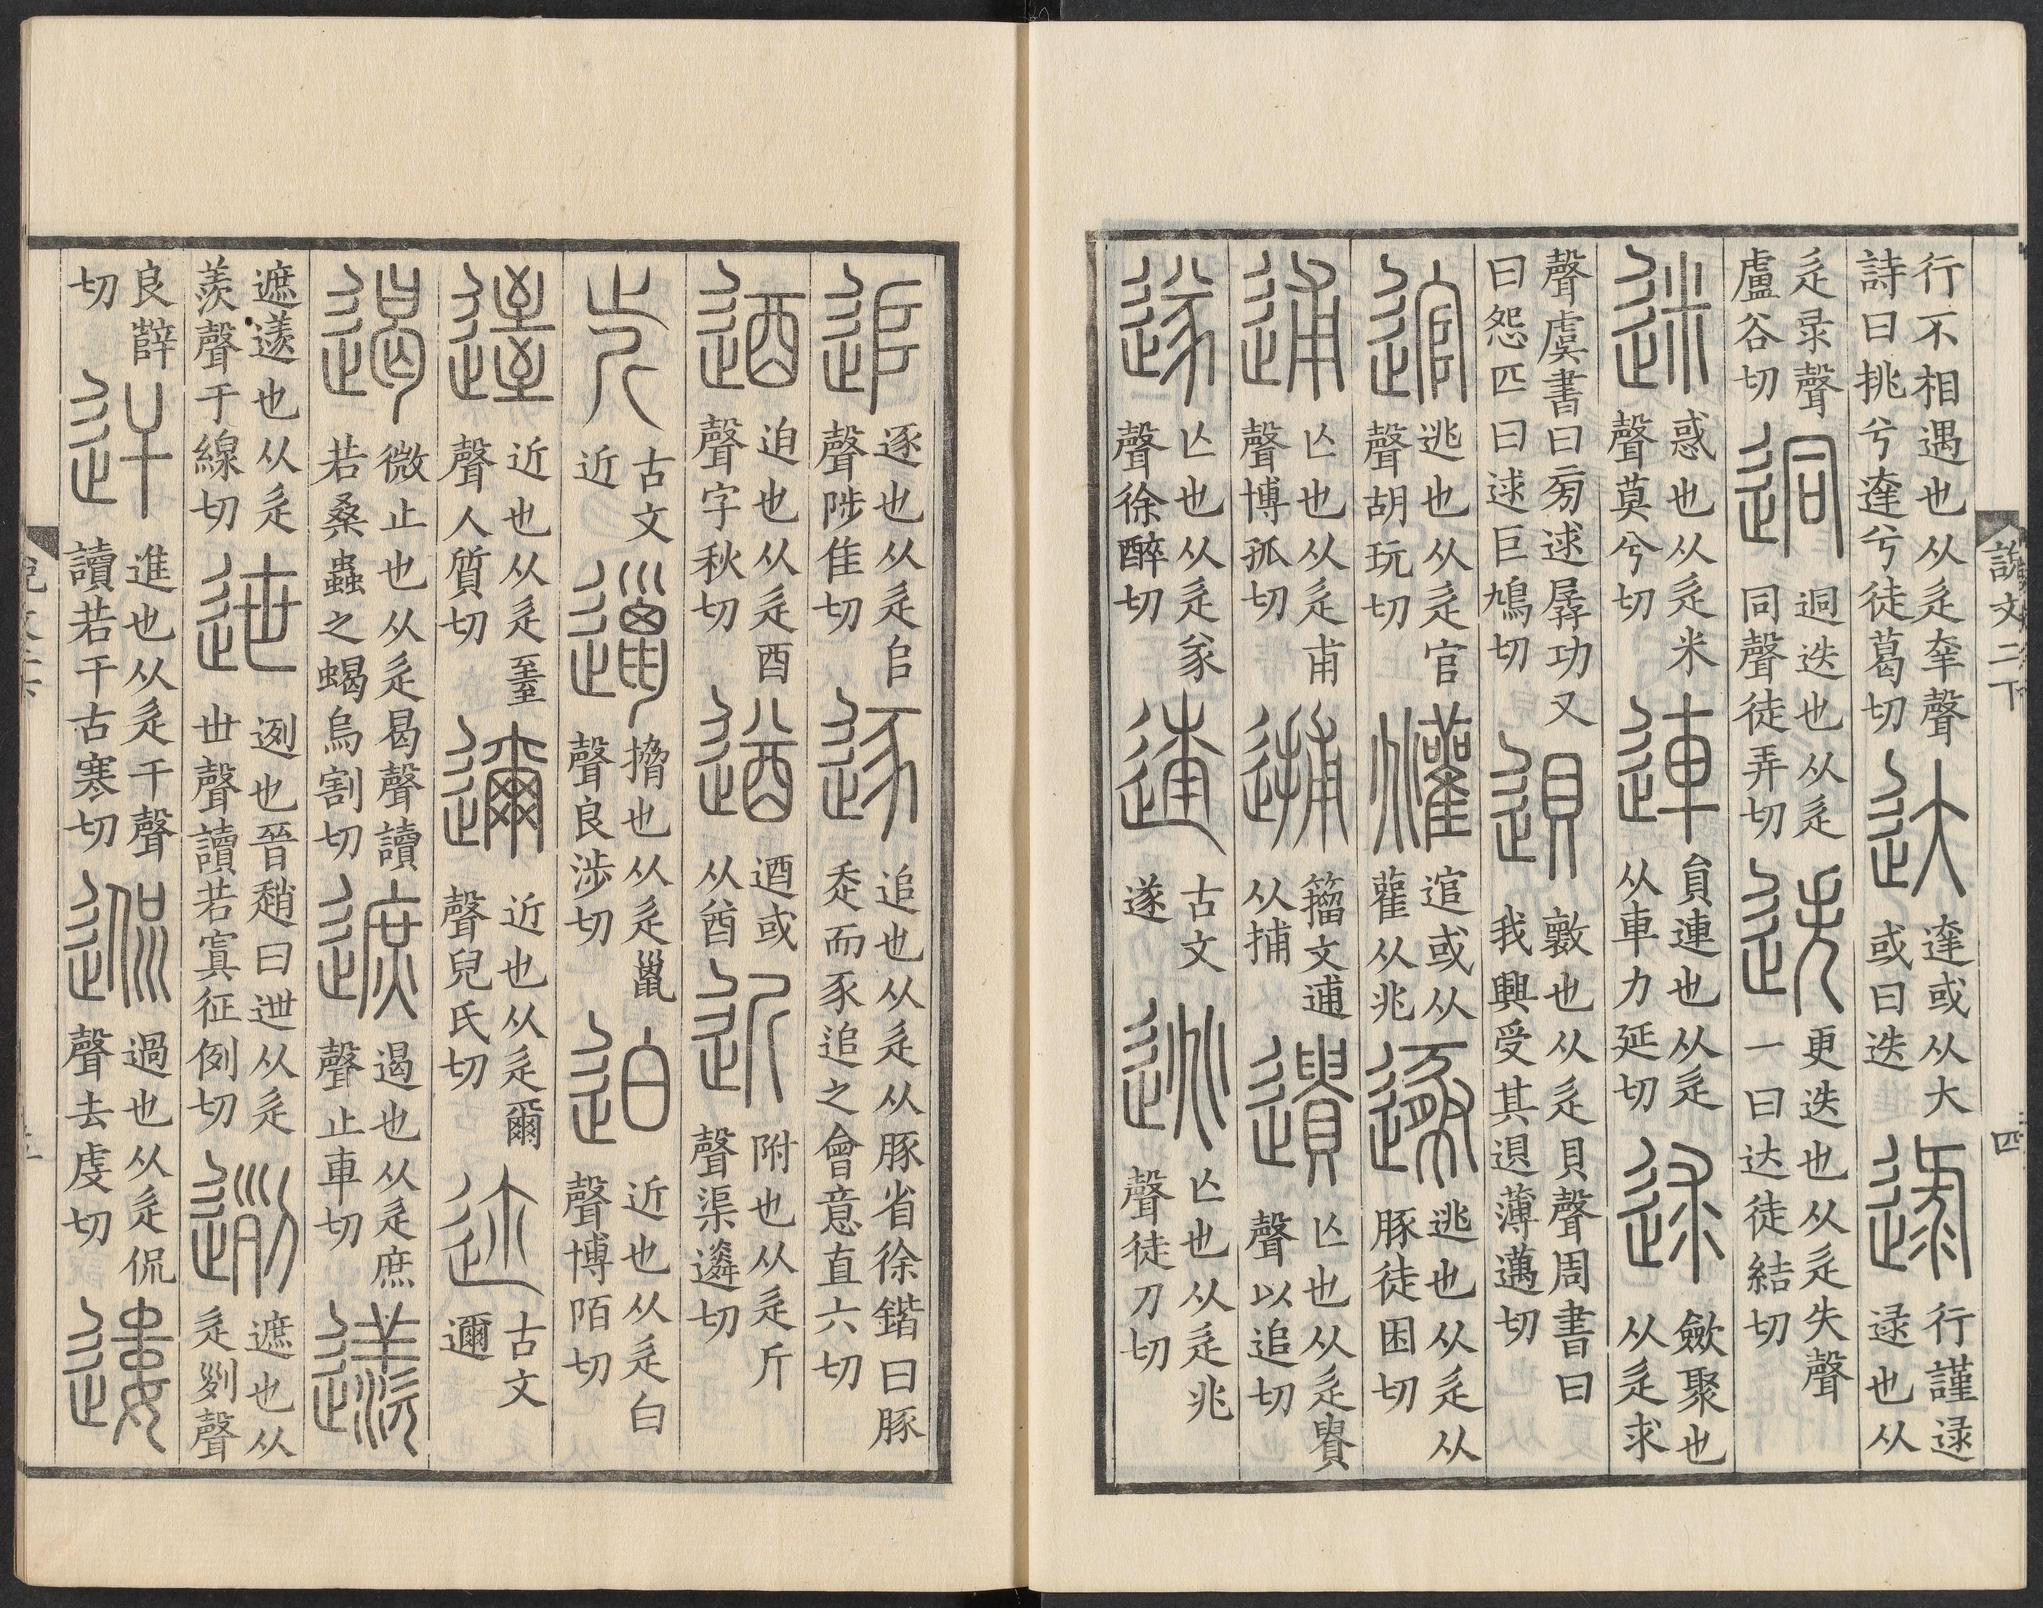 説文二下 四
行不相遇也从辵羍聲詩曰挑兮達兮徒葛切 达 達或从大或曰迭 逯 行謹逯逯也从
辵录聲盧谷切 迵 迵迭也从辵同聲徒弄切 迭 更迭也从辵失聲一曰达徒結切
迷 惑也从辵米聲莫兮切 連 員連也从辵从車力延切 逑 斂聚也从辵求
聲虞書曰㫄逑孱功又曰怨匹曰逑巨鳩切 𨓤 𣀩也从辵貝聲周書曰我興受其𨓤薄邁切
逭 逃也从辵官聲胡玩切 㒆 逭或从雚从兆 遯 逃也从辵从豚徒困切
逋 亾也从辵甫聲博孤切 𨕛 籒文逋从捕 遺 亾也从辵𧶠聲以追切
遂 亾也从辵㒸聲徐醉切 古文遂 逃 亾也从辵兆聲徒刀切
追 逐也从辵𠂤聲陟隹切 逐 追也从辵从豚省徐鍇曰豚走而豕追之會意直六切
迺 迫也从辵酉聲字秋切 遒 逎或从酋 近 附也从辵斤聲渠遴切
古文近 邋 擸也从辵巤聲良涉切 迫 近也从辵白聲博陌切
𨕬 近也从辵臸聲人質切 邇 近也从辵爾聲兒氏切 迩 古文邇
遏 微止也从辵曷聲讀若桑蟲之蝎烏割切 遮 遏也从辵庶聲止車切 䢭
遮䢭也从辵羨聲于線切 迣 迾也晉趙曰迣从辵世聲讀若寘征例切 迾 遮也从辵𠛱聲
良辥切 迀 進也从辵干聲讀若干古寒切 𨓜 過也从辵侃聲去虔切 遱